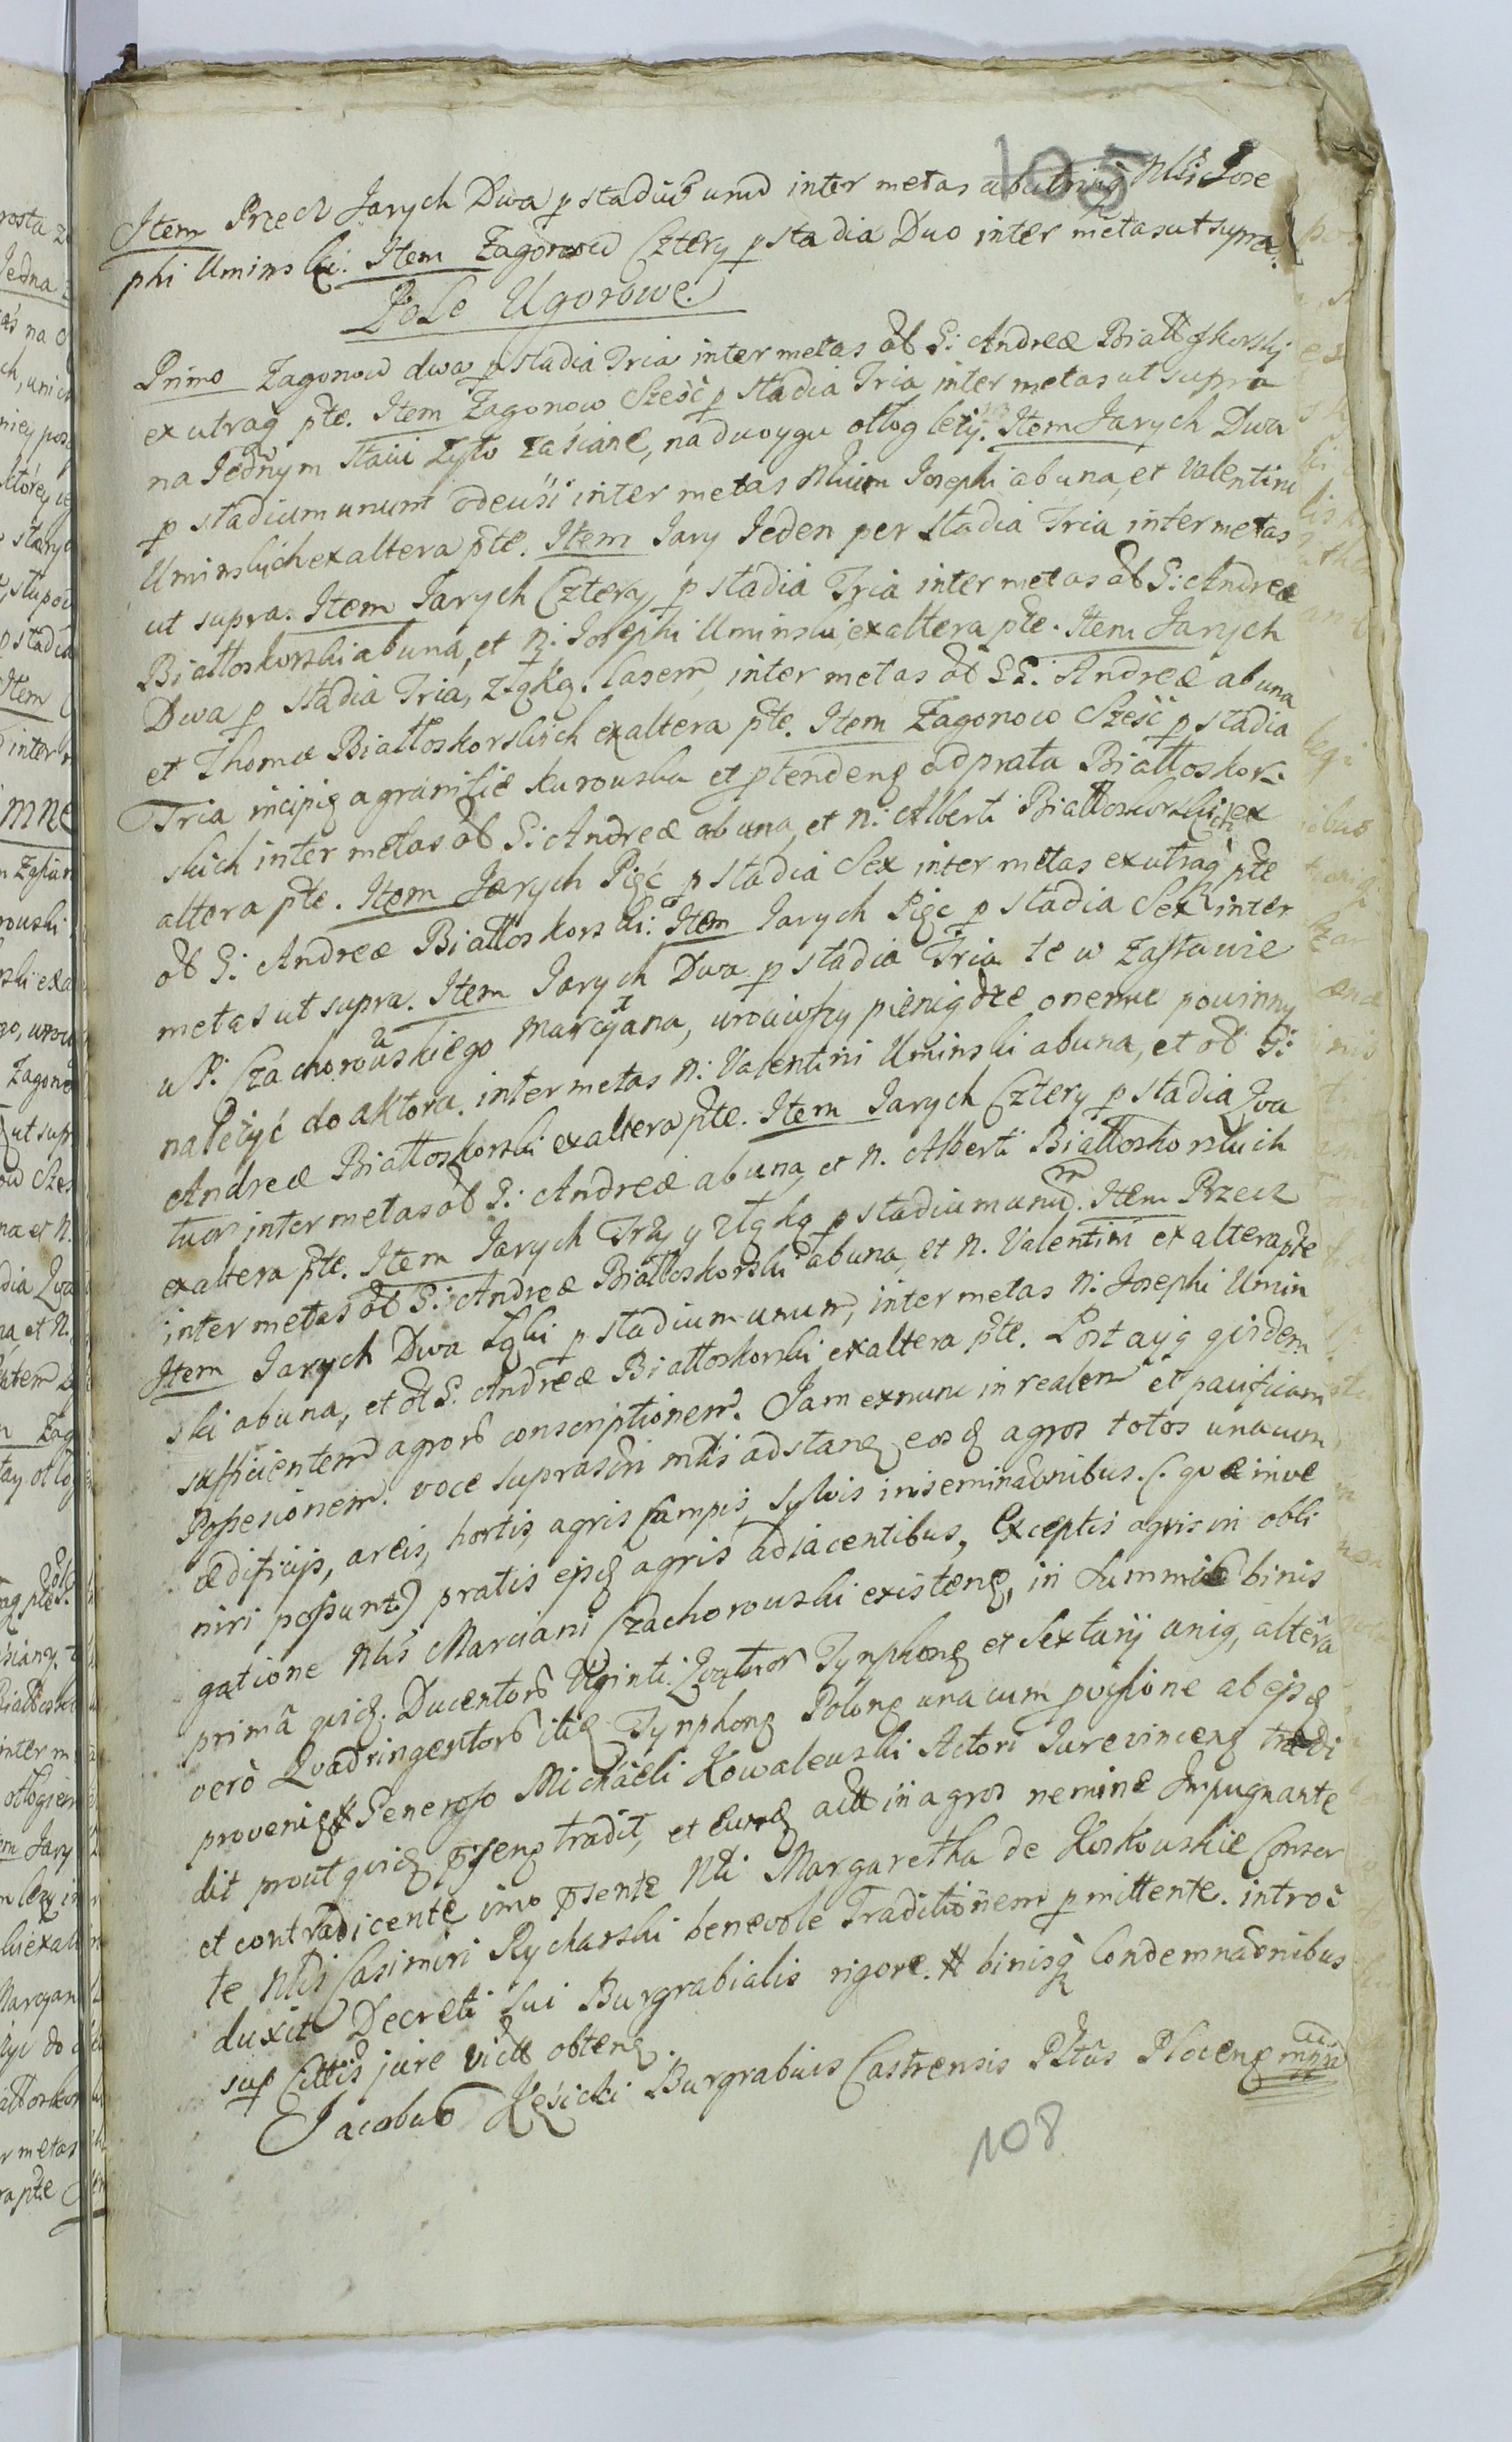 105
Item Przecz Jarych Dwa p stadiũ unũ inter metas ab utraq̃ Nlis Jose
phi Uminski. Item Zagonow Cztery p stadia Duo inter metas ut supra.
Pole Ugorowe.
Primo Zagonow dwa p stadia Tria inter metas G: Andreæ Białłoskorskj
ex utraq̃ pte. Item Zagonow Sześć p stadia Tria inter metas ut supra
na Jednym staiu żyto zasiane, na dwoygu odłog leży. Item Jarych Dwa
p stadium unum odewsi inter metas Nlium Josephi ab una, et Valentini
Uminskich ex altera pte. Item Jary Jeden per stadia Tria inter metas
ut supra. Item Jarych Cztery p stadia Tria inter metas G: Andreæ
Białłoskorski ab una, et N: Josephi Uminski, ex altera pte. Item Jarych
Dwa p stadia Tria, złąką. Casem, inter metas GG: Andreæ ab una
et Thomæ Białłoskorskich ex altera pte. Item Zagonow Sześć p stadia
Tria incipię a granicie kurowska et ptendenę ad prata Białłoskor-
skich inter metas G: Andreæ ab una, et N: Alberti Białłoskorskich ex
altera pte. Item Jarych Pięć p stadia Sex inter metas ex utraq̃ pte
G: Andreæ Białłoskorski. Item Jarych Pięć p stadia Sex inter
metas ut supra. Item Jarych Dwa p stadia Tria te w zastawie
u P: Czachorowskiego Marcyana, wrociwszy pieniądze onemu powinny
należyć do aktora. inter metas N: Valentini Uminski ab una, et G:
Andreæ Białłoskorski ex altera pte. Item Jarych Cztery p stadia Qva
tuor inter metas G: Andreæ ab una, et N. Alberti Białłoskorskich
ex altera pte. Item Jarych Trzy y łąką p stadium unum. Item Przecz
inter metas G: Andreæ Białłoskorski ab una, et N. Valentini ex altera pte
Item Jarych Dwa łąki p stadium unum, inter metas N: Josephi Umin
ski ab una, et G: Andreæ Białłoskorski ex altera pte. Post qisdem
sufficientem agrorũ conscriptionem. Jam ex nunc in realem et pacificam
Possesionem. voce suprascri adstanę eosq agros totos unacum
ædificijs, areis, hortis, agris Campis, Sylvis inseminaõnibus. (. qvæ inve
niri possunt) pratis ejsq agris adiacentibus, Exceptis agris in obli
gatione Nlis Marciani Czachorowski existenę, in Summis binis
primâ qviq. Ducentorũ Viginti Qvatuor Tynphonę et Sextarij unię, alterâ
verò Qvadringentorũ itię Tynphonę Polonę una cum pvisione ab ejsq
provenię Generoso Michaeli Kowalewski Actori Jurevincenę tradi
dit prout qviq psenę tradit, et eundę in agros nemine Impugnante
et contradicente imo psente Nli Margaretha de Koskowskie Consor
te Nlis Casimiri Rycharski benevole Traditionem pmittente. introe
duxit Decreti Sui Burgrabialis rigore. binisq̃ Condemnaõnibus
sup Cittis jure victo obtenę.
Jacobus Kęsicki Burgrabius Castrensis Pltus Plocenę mpp
108